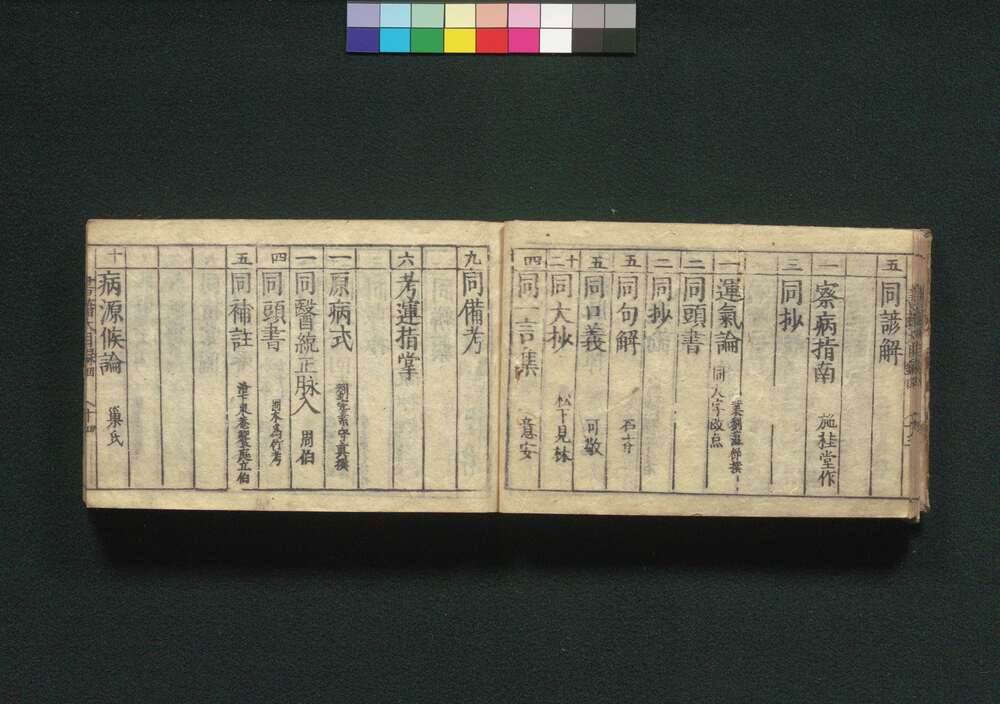 五 同諺解
一 察病指南 施桂堂作
三 同抄
一 運氣論 宋劉温舒撰
同大字改点
二 同頭書
二 同抄
五 同句解
五 同口義 可敬
十二 同大抄 松下見林
四 同一言集 意安
九 同備考
六 考運指掌
一 原病式 劉完素守真撰
一 同醫統正脉入
四 同頭書
五 同補註
十 病源候論 巢氏
書籍大目録四 八十四